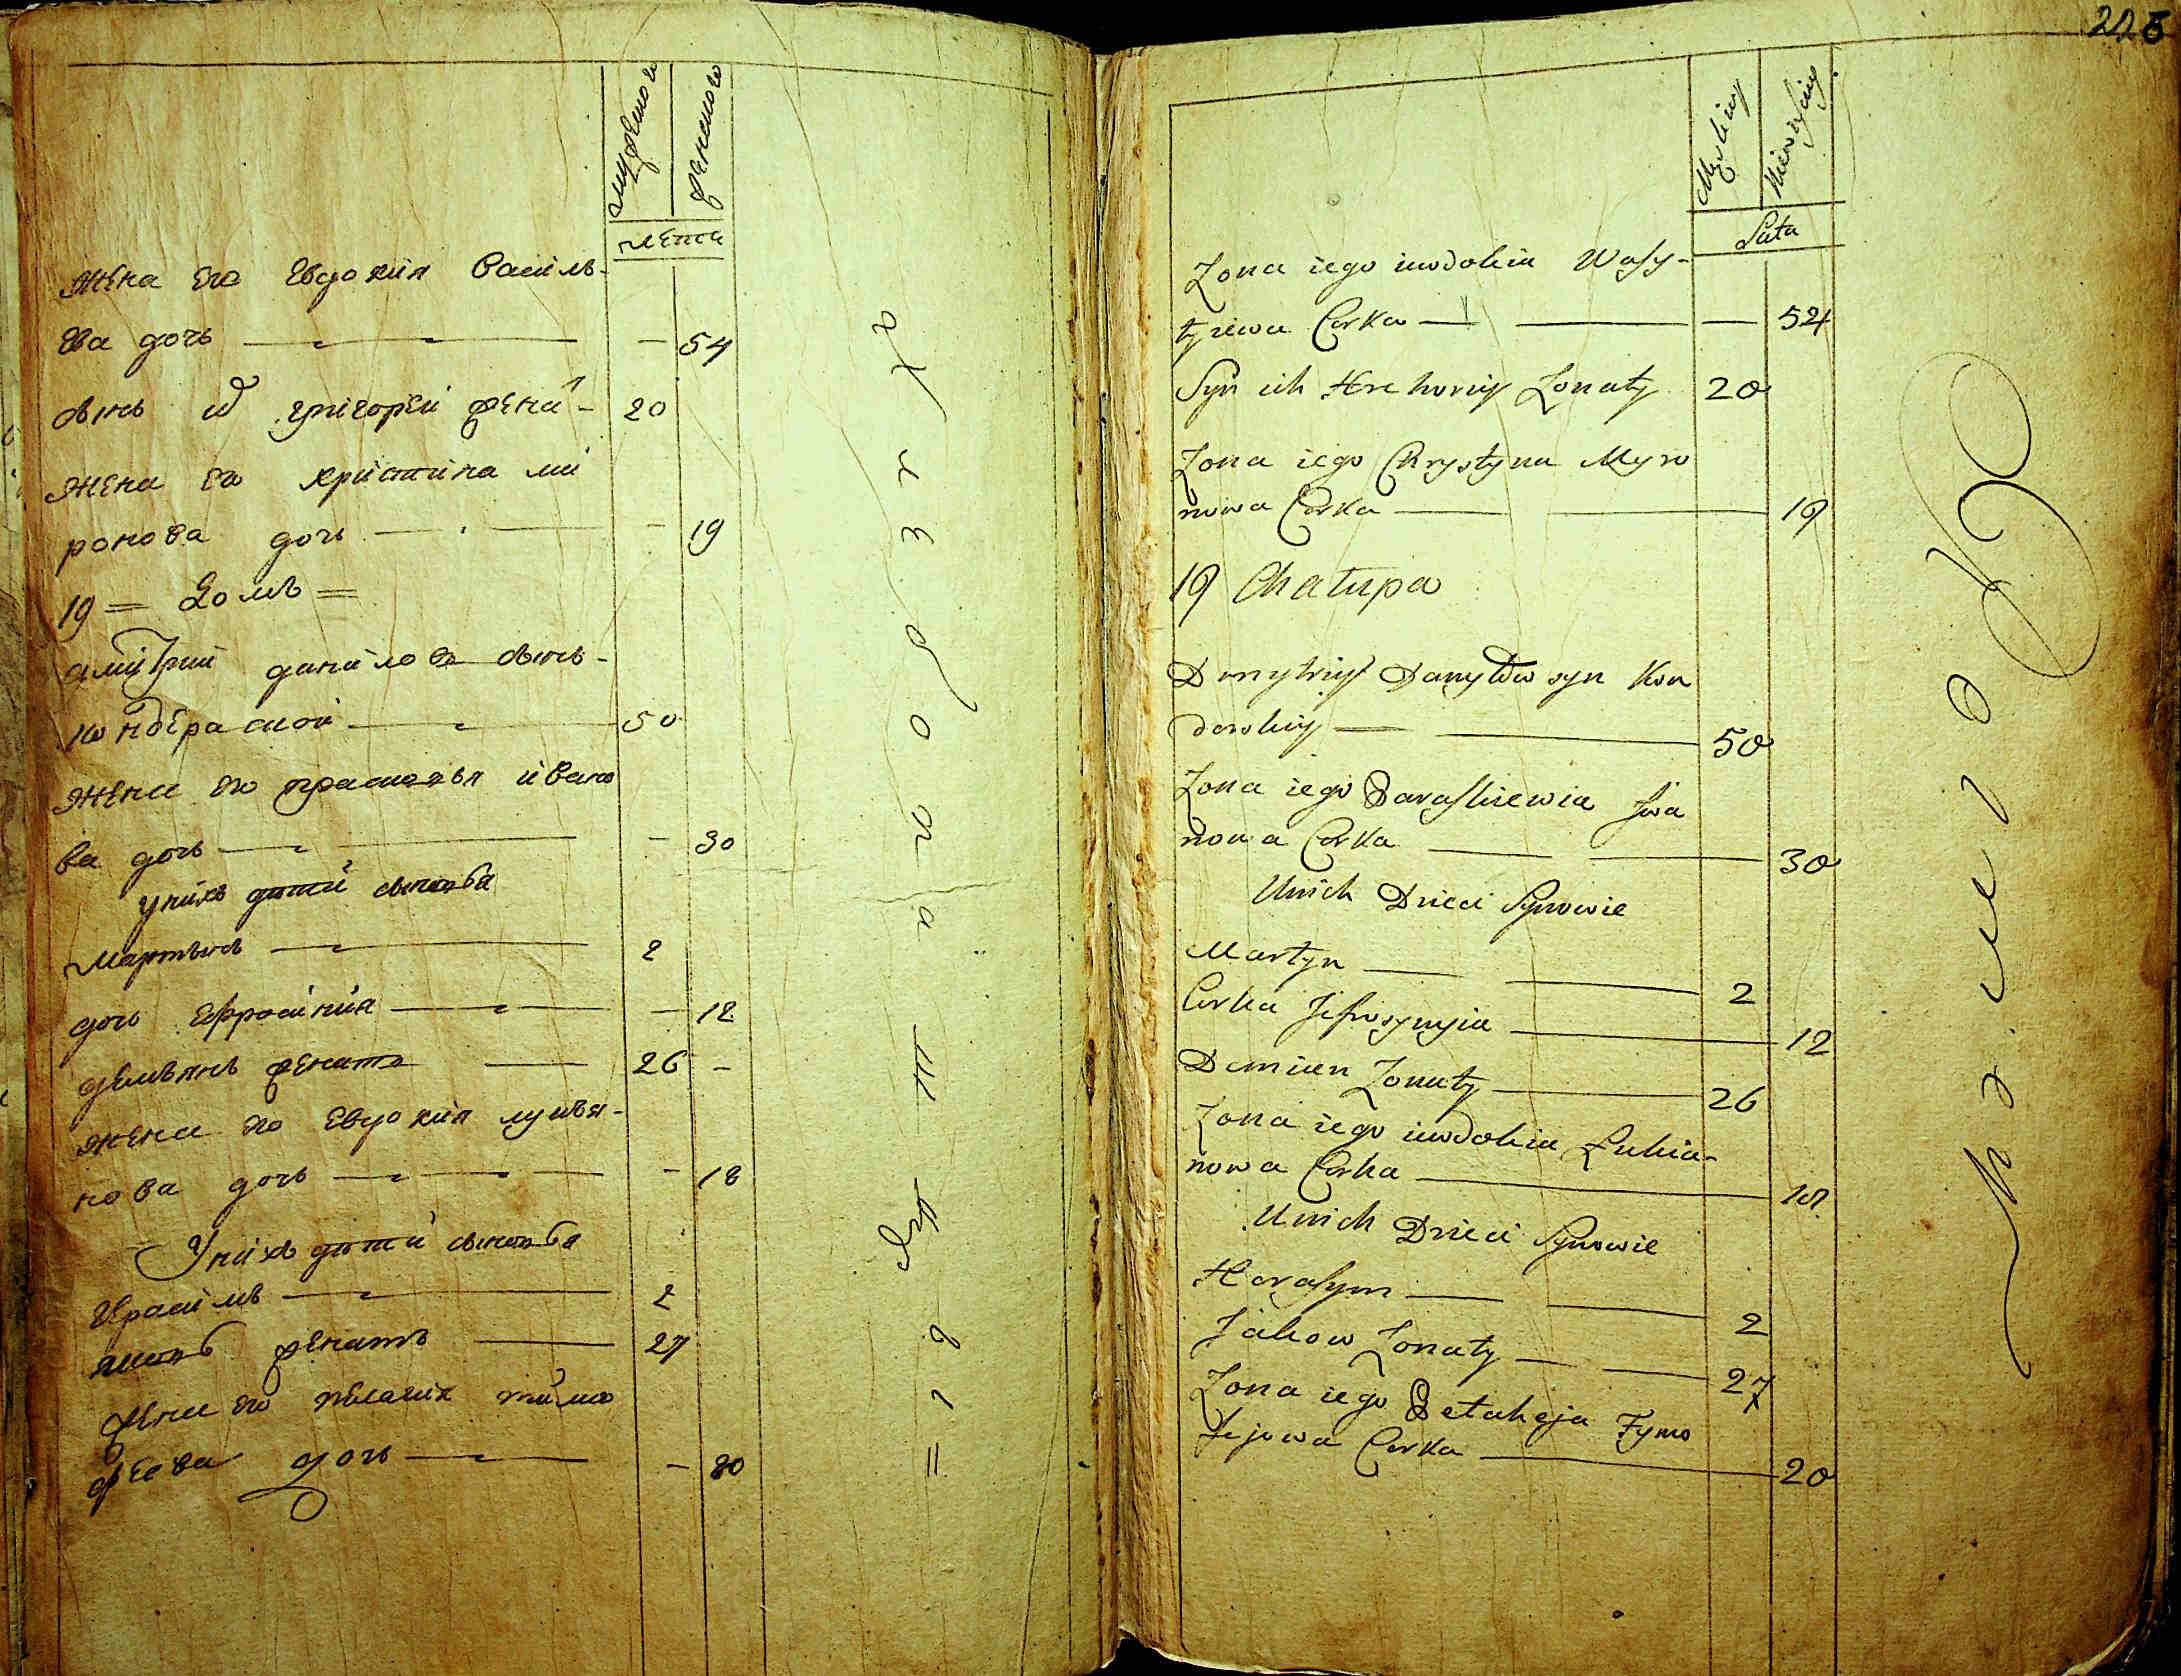 мужеска
женска
Лета
Жена его Евдокия Василь-
ева дочь — 54
сынъ их григорей жена- 20
Жена его христина ми
ронова дочь — 19
19 = Домъ =
Дмитрий данилов сынъ
кондерацкой 50
Жена его прасковья ивано
ва дочь — 30
у них детей сыновья
мартынъ 2
дочь Ефросиния — 12
демьянъ женатъ 26 -
жена его Евдокия лукья-
нова дочь — 18
У них детей сыновья
Герасимъ 2
яковъ женатъ 27
жена его пелагия тимо
феева дочь — 20
226
Męskiey
Niewieściey
Lata
Żona iego iewdokia Wasy-
lyiewa Corka — 54
Syn ich Hrehoriy Żonaty 20
Żona iego Chrystyna Myro
nowa Corka 19
19 Chałupa
Dmytriy Danyłow syn Kon
dorskiy 50
Żona iego Paraskiewia Iwa
nowa Corka 30
Unich Dzieci Synowie
Martyn 2
Corka Jefrosynyia 12
Demian Żonaty 26
Żona iego iewdokia Łukia-
nowa Corka 18
Unich Dzieci Synowie
Harasym 2
Jakow Żonaty 27
Żona iego Pelaheja Tymo
fejowa Corka 20